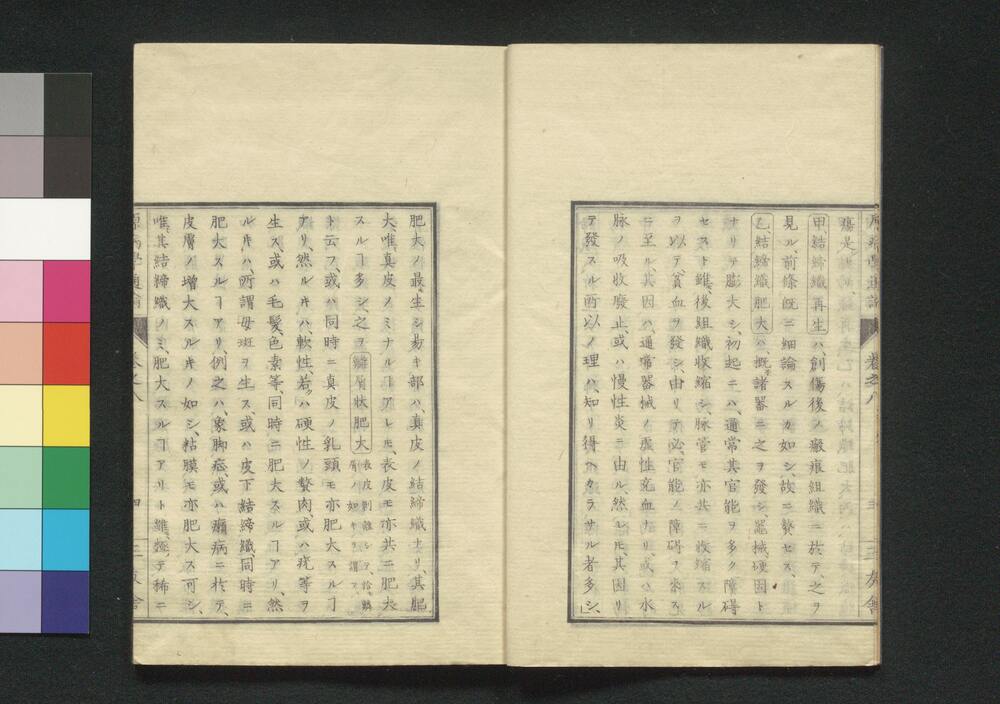 甲、結締織再生ハ、創傷後ノ瘢痕組織ニ於テ、之ヲ
見ル、前條既ニ細論スルカ如シ、故ニ贅セス、
乙、結締織肥大ハ、概諸器ニ之ヲ發シ、器械硬固ト
ナリテ膨大シ、初起ニハ、通常其官能ヲ多ク障碍
セスト雖、後組織收縮シ、脉管モ亦共ニ收縮スル
ヲ以テ、貧血ヲ發シ、由リテ必官能ノ障碍ヲ來ス
ニ至ル、其因ハ、通常器械ノ虚性充血ナリ、或ハ水
脉ノ吸收廢止、或ハ慢性炎ニ由ル、然レ𪜈、其因リ
テ發スル所以ノ理ハ、知リ得ヘカラサル者多シ、
肥大ノ最生シ易キ部ハ、真皮ノ結締織ナリ、其肥
大、唯真皮ノミナルヿアレ𪜈、表皮モ亦共ニ肥大
スルヿ多シ、之ヲ鱗屑狀肥大表皮剝離シテ、恰鱗屑ノ如キヲ謂フ、
ト云フ、或ハ同時ニ真皮ノ乳頭モ亦肥大スルヿ
アリ、然ルキハ、軟性、若クハ硬性ノ贅肉或ハ疣等ヲ
生ス、或ハ毛髪、色素等、同時ニ肥大スルヿアリ、然
ルキハ、所謂母斑ヲ生ス、或ハ皮下結締織、同時ニ
肥大スルヿアリ、例之ハ、象脚症、或ハ癩病ニ於テ、
皮膚ノ増大スルキノ如シ、粘膜モ亦肥大ス可シ、
唯其結締織ノミ、肥大スルヿアリト雖、極テ稀ニ